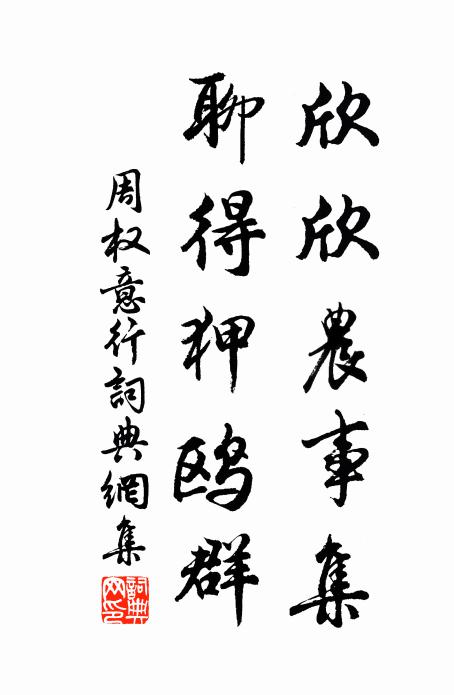 欣欣農事集
聊得狎鸥群
周权意行詞典網集
詞典网印